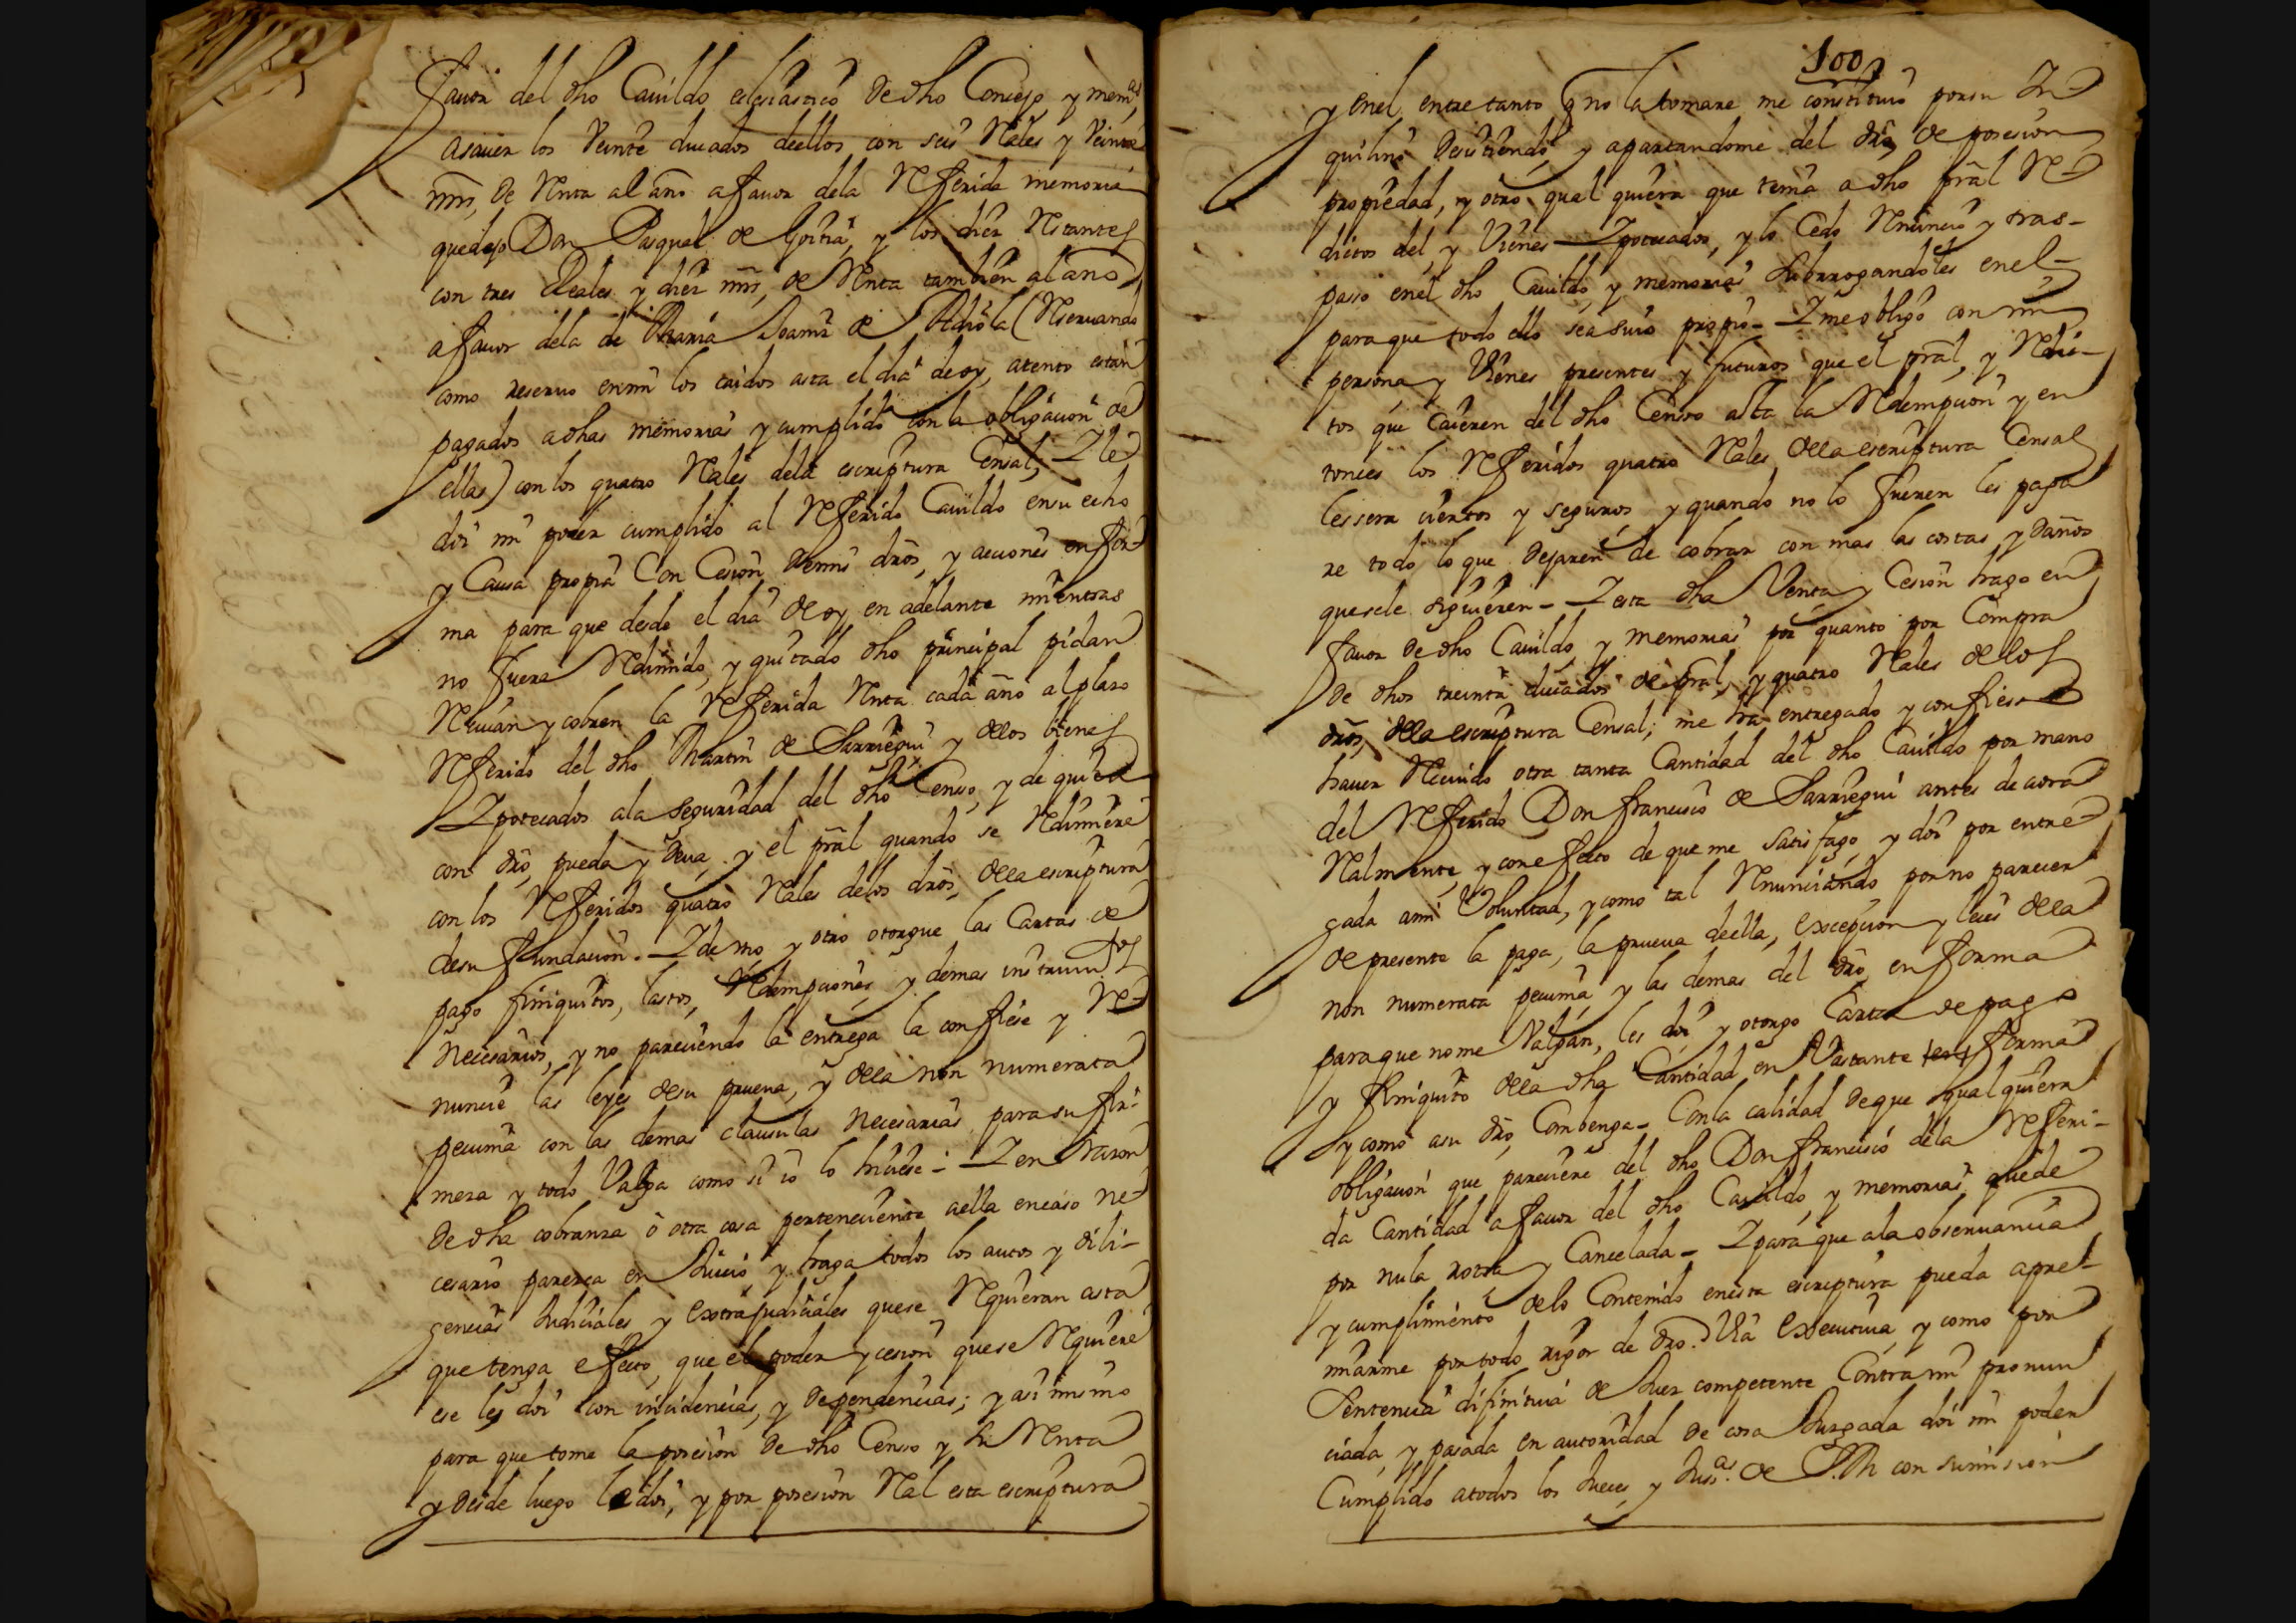 fauor del dho Cauildo eclesiastico de dho Concejo y mem.as
asauer los Veinte ducados deellos con seis Rales y Veinte
mrs, de Renta al año afauor dela Referida memoria
quedejo Don Pasqual de Goitia, y los diez Restantes
con tres Reales y diez mrs, de Renta tambien al año
afauor dela de Maria Joanis de (Reseruando
como reseruo enmi los caidos asta el dia de oy, atento estan
pagados adhas memorias y cumplido con la obligacion de
ellas) con los quatro Rales dela escriptura Censal; I le
doi mi poder cumplido al Referido Cauildo ensu echo
y Causa propia Con Cesion demis dros, y acciones enfor
ma para que desde el dia de oy en adelante mientras
no fuere Redimido, y quitado dho principal pidan
Reciuan y cobren la Referida Renta cada año al plazo
Referido del dho Martin de Sarriegui y delos bienes
Ipotecados ala seguridad del dho Censo, y de quien
con dro, pueda y deua, y el pral quando se Redimiere
con los Referidos quatro Rales delos dros, dela escriptura
desu fundacion. I de mo y otro otorgue las Cartas de
pago finiquitos, lastos, Redempciones y demas instrumtos
Necesarios, y no pareciendo la entrega la confiese y Re
nuncie las leyes desu prueua, y dela non numerata
pecunia con las demas clausulas Necesarias para su fir-
meza y todo Valga como si io lo hiciese - I en Razon
de dha cobranza ò otra cosa perteneciente aella encaso ne
cesario parezca en Juicio y haga todos los autos y dili-
gencias Judiciales y extrajudiciales quese Requieran asta
que tenga efecto, que el poder y cesion quese Requiere
ese les doi con incidencias, y dependencias; y asi mismo
para que tome la posesion de dho Censo y su Renta
y desde luego le doi, y por posesion Real esta escriptura
100
y enel entretanto q no la tomare me constituio porsu In
quilino Desistiendo y apartandome del dro, de posesion
propiedad, y otro qual quiera que tenia a dho pral Re
ditos del, y Vienes Ipotecados, y lo Cedo Renuncio y tras-
paso enel dho Cauildo, y memorias Subrrogandoles enel
para que todo ello sea suio propio - I me obligo con mi
persona y Vienes presentes y futuros que el pral, y Redi-
tos que Caieren del dho Censo asta la Redempcion y en
tonces los Referidos quatro Rales dela escriptura Censal
les sera ciertos y seguros y quando no lo fueren les paga
re todo lo que dejaren de cobrar con mas las costas y daños
quesele siguieren - I esta dha Venta y Cesion hago en
fauor de dho Cauildo y memorias por quanto por Compra
de dhos treinta ducados de pral, y quatro Rales delos
dros, dela escriptura Censal; me ha entregado y confieso
hauer Reciuido otra tanta Cantidad del dho Cauildo por mano
del Referido Don francisco de Sarriegui antes de aora
Realmente y con efecto de que me satisfago, y doi por entre
gado ami Voluntad, y como tal Renunciando por no parecer
de presente la paga, la prueua deella, excepcion y leies dela
non numerata pecunia y las demas del dro, en forma
para que no me Valgan, les doi y otorgo Carta de pago
y finiquito dela dha Cantidad en Vastante forma
y como asu dro, Combenga - Con la calidad deque qualquiera
obligacion que pareciere del dho Don francisco dela Referi-
da Cantidad afauor del dho Cauildo, y memorias quede
por nula rotta y Cancelada - I para que ala obseruancia
y cumplimiento delo Contenido enesta escriptura pueda apre-
miarme por todo rigor de dro. Via executiua, y como por
Sentencia difinitiua de Juez competente Contra mi pronun
ciada, y pasada en autoridad de cosa Juzgada doi mi poder
Cumplido atodos los Jueces y Jusas. de S.M. con sumision